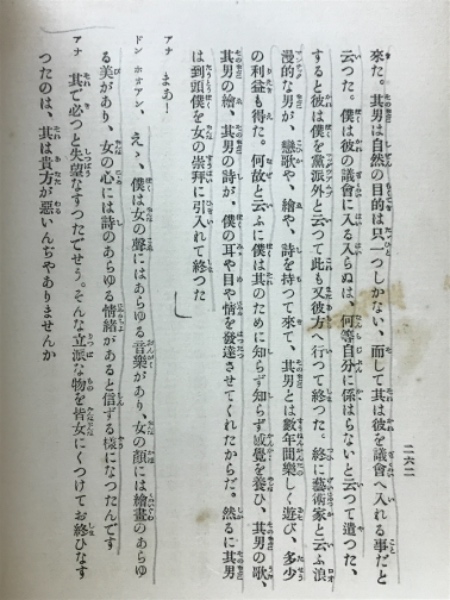 二六二
來た。其男は自然の目的は只一つしかない、而して其は彼を議會へ入れる事だと
云つた。僕は彼の議會に入る入らぬは、何等自分に係はらないと云つて遣つた、
すると彼は僕を黨派外と云つて此も又彼方へ行つて終つた。終に藝術家と云ふ浪
漫的な男が、戀歌や、繪や、詩を持つて來て、其男とは數年間樂しく遊び、多少
の利益も得た。何故と云ふに僕は其のために知らず知らず感覺を養ひ、其男の歌、
其男の繪、其男の詩が、僕の耳や目や情を發達させてくれたからだ。然るに其男
は到頭僕を女の崇拜に引入れて終つた
アナ まあー
ドン ホオアン、えゝ、僕は女の聲にはあらゆる音樂があり、女の顏には繪畫のあらゆ
る美があり、女の心には詩のあらゆる情緒があると信ずる樣になつたんです
アナ 其で必つと失望なすつたでせう。そんな立派な物を皆女にくつけてお終ひなす
つたのは、其は貴方が惡いんぢやありませんか